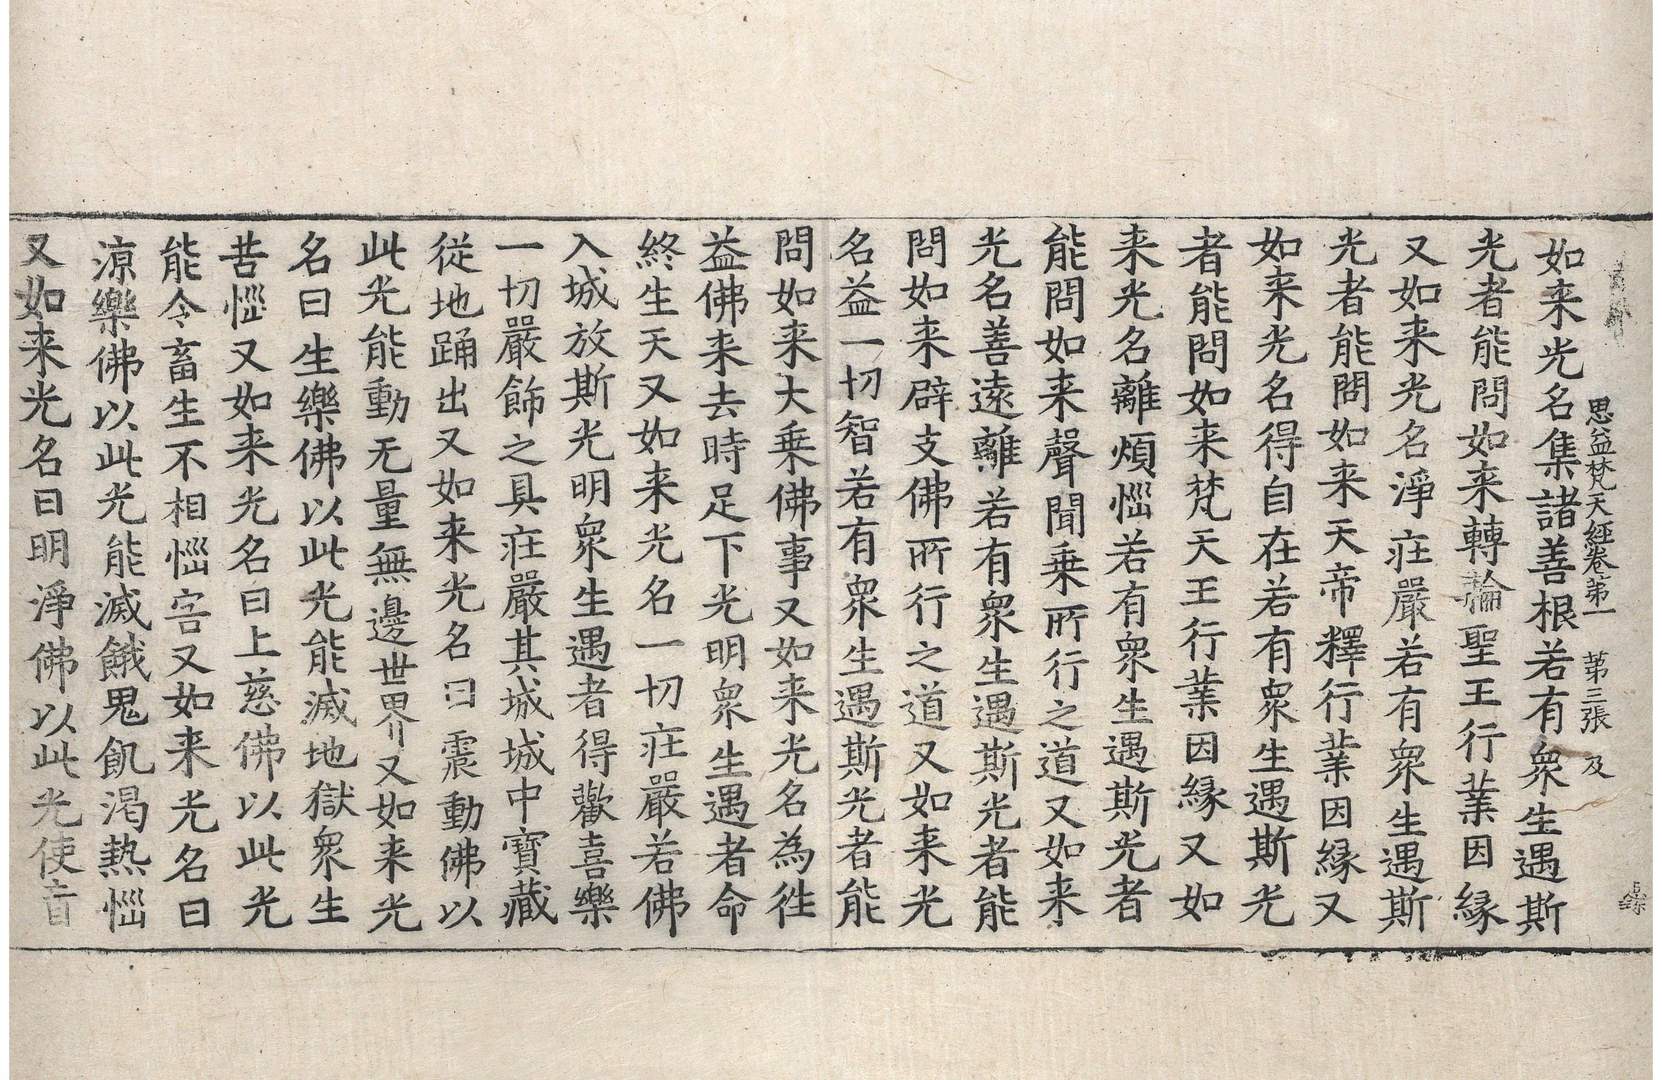 思益梵天經卷第一　第三張　及
如来光名集諸善根若有衆生遇斯
光者能問如来轉輪聖王行業因縁
又如来光名淨庄嚴若有衆生遇斯
光者能問如来天帝釋行業因縁又
如来光名得自在若有衆生遇斯光
者能問如来梵天王行業因縁又如
来光名離煩惱若有衆生遇斯光者
能問如来聲聞乗所行之道又如来
光名善遠離若有衆生遇斯光者能
問如来辟支佛所行之道又如来光
名益一切智若有衆生遇斯光者能
問如来大乗佛事又如来光名為徃
益佛来去時足下光明衆生遇者命
終生天又如来光名一切庄嚴若佛
入城放斯光明衆生遇者得歡喜樂
一切嚴飾之具庄嚴其城城中寶藏
従地踊出又如来光名曰震動佛以
此光能動无量無邊世界又如来光
名曰生樂佛以此光能滅地獄衆生
苦惱又如来光名曰上慈佛以此光
能令畜生不相惱害又如来光名曰
涼樂佛以此光能滅餓鬼飢渇熱惱
又如来光名曰明淨佛以此光使盲